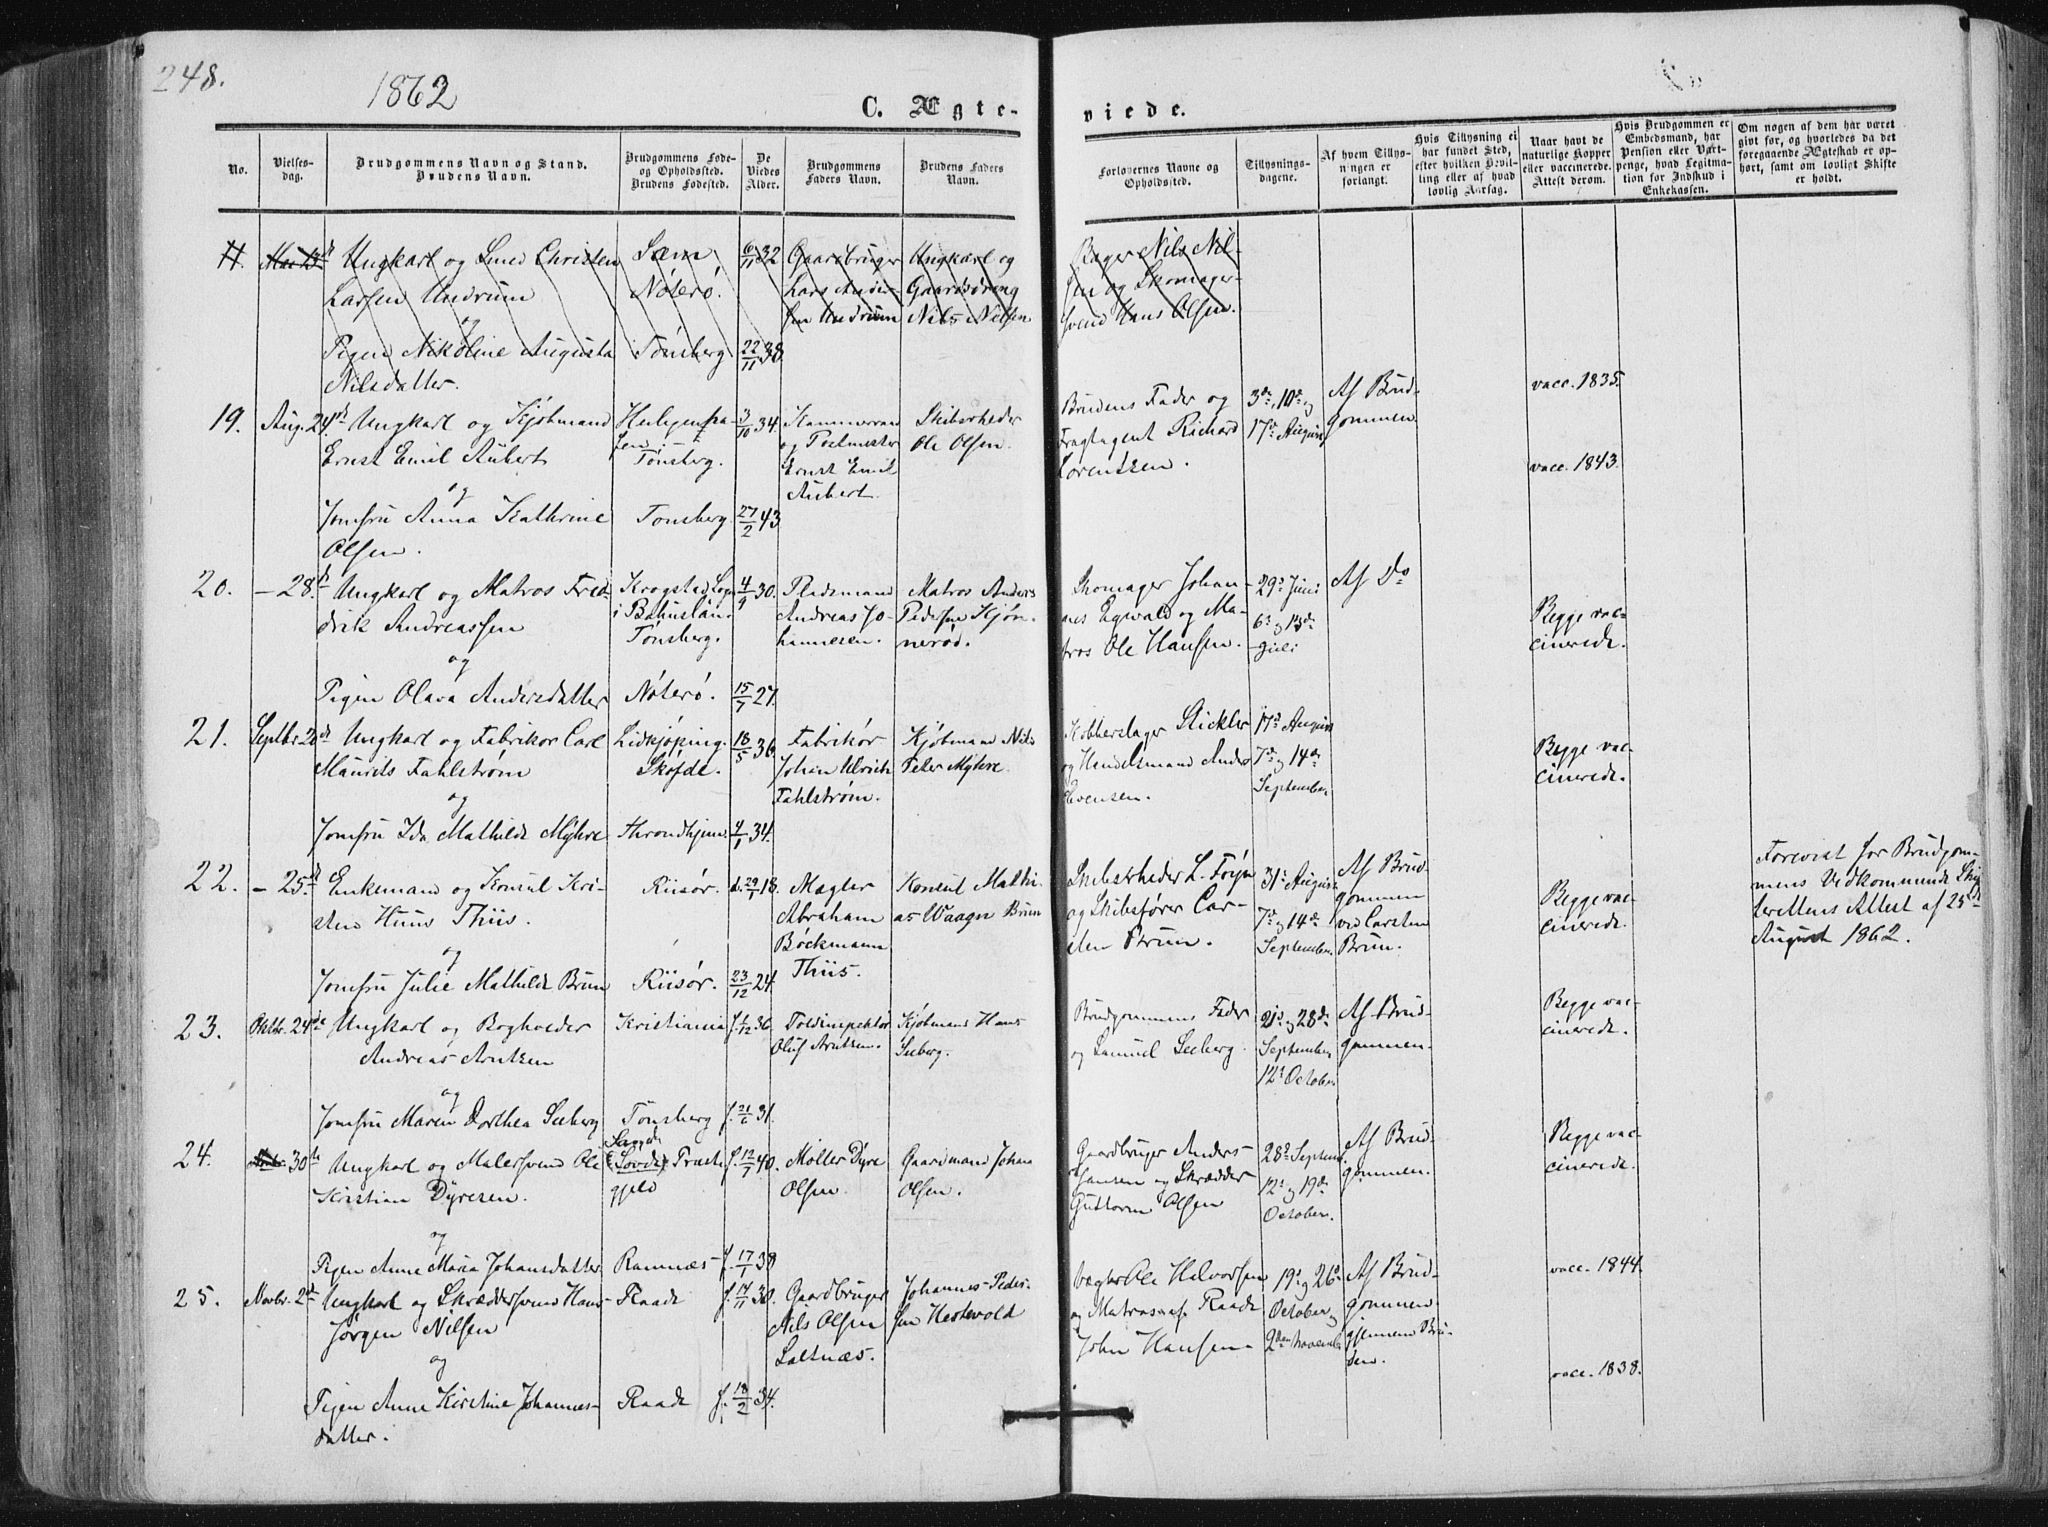 248.
1862
C. Ægte-
viede.
No.
Vielses-
dag.
Brudgommens Navn og Stand.
Brudens Navn.
Brudgommens Føde-
og Opholdssted.
Brudens Fødested.
De
Viedes
Alder.
Brudgommens
Faders Navn.
Brudens Faders
Navn.
Forlovernes Navne og
Opholdssted.
Tillysnings-
dagene.
Af hvem Tillys-
ningen er
forlangt.
Hvis Tillysning ei
har fundet Sted,
efter hvilken Bevil-
ling eller af hvad
lovlig Aarsag.
Naar havt de
naturlige Kopper
eller vaccinerede.
Attest derom.
Hvis Brudgommen er
Embedsmand, har
Pension eller Vart-
penge, hvad Legitima-
tion for Indskud i
Enkekassen.
Om nogen af dem har været
gift før, og hvorledes da det
foregaaende Ægteskab er op-
hørt, samt om lovligt Skifte
er holdt.
Ungkarl og Smed Christen
Larsen Undrum
og
Pigen Nikoline Augusta
Nilsdatter.
Sæm
Nøterø.
Tønsberg
6/11 32
22/11 38.
Gaardbruger
Lars Ander-
sen Undrum
Ungkarl og
Gaardsdreng
Nils Nilsen
Bager Nils Nil-
sen og Skomager-
svend Hans Olsen.
19.
Aug. 24de
Ungkarl og Kjøbmand
Ernst Emil Aubert
og
Jomfru Anna Kathrine
Olsen.
Tønsberg.
Tønsberg.
3/10 34.
27/2 43
Kammerraad
og Postmester
Ernst Emil
Aubert.
Skibsrheder
Ole Olsen.
Brudens Fader og
Fragtagent Richard
Lorentzen.
3de, 10de og
17de August
Af Brud-
gommen.
vacc. 1835.
vacc. 1843.
20.
- 28.
Ungkarl og Matros Fred-
drik Andreassen
og
Pigen Olava Andersdatter
Krogstad Sogn
i Bahuslän.
Tønsberg.
Nøterø.
4/9 30.
15/7 27.
Pladsmand
Andreas Jo-
hannesen.
Matros Anders
Pedersen Kjøn-
nerød.
Skomager Johan-
nes Egwald og Ma-
tros Ole Hansen.
29de Juni
6te og 13de
Juli
Af Do
Begge vac-
cinerede.
21.
Septbr. 20de
Ungkarl og Fabrikør Carl
Maurits Fahlstrøm
og
Jomfru Ida Mathilde Myhre
Lidkjøping.
Skøfde.
Throndhjem.
18/5 36
4/1 34.
Fabrikør
Johan Ulrich
Fahlstrøm.
Kjøbmand Nils
Peter Myhre.
Kobberslager Stickler
og Handelsmand Anders
Evensen.
17de August
7de og 14de
September
Begge vac-
cinerede.
22.
- 25de
Enkemand og Konsul Kri-
sten Huus Thiis.
og
Jomfru Julie Mathilde Brun
Riisør.
Riisør.
d. 29/1 18.
23/12 24.
Mægler
Abraham
Bøckmann
Thiis.
Konsul Mathi-
as Waagn Brun
Skibsrheder L. Føyn
og Skibsfører Car-
sten Brun.
31te August
7de og 14de
September.
Af Brud-
gommen
ved Carsten
Brun.
Begge vac-
cinerede.
Forevist for Brudgom-
mens Vedkommende Skif-
terettens Attest af 25de
August 1862.
23.
Oktbr. 24de
Ungkarl og Bogholder
Andreas Arntzen
og
Jomfru Maren Dorthea Seeberg
Kristiania
Tønsberg
f. 1/12 36
f. 21/6 31.
Toldinspektør
Oluf Arntzen.
Kjøbmand Hans
Seeberg.
Brudgommens Fader
og Samuel Seeberg.
21de og 28de
September
12te October
Af Brud-
gommen.
Begge vac-
cinerede.
24.
30te
Ungkarl og Malersvend Ole
Kristian Dyresen.
og
Pigen Anne Maria Johansdatter
Præste-
gjeld
Ramnæs
f. 12/7 40.
f. 17/1 38
Møller Dyre
Olsen.
Gaardmand Johan
Olsen.
Gaardbruger Anders
Hansen og Skrædder
Guttorm Olsen
28de Septem.
12te og 19de
October.
Af Brud-
gommen.
Begge vac-
cinerede.
25.
Novbr. 2den
Ungkarl og Skræddersvend Hans
Jørgen Nilsen
og
Pigen Anne Kirstine Johannes-
datter.
Raade
Raade
f. 14/11 30.
f. 18/2 34.
Gaardbruger
Nils Olsen
Saltnæs.
Johannes Peder-
sen Hestevold
Vægter Ole Halvorsen
og Matros af Raade
John Hansen
19de og 26de
October og
2den November
Af Brud-
gommen
gjennem Bru-
den.
vacc. 1844.
vacc. 1838.